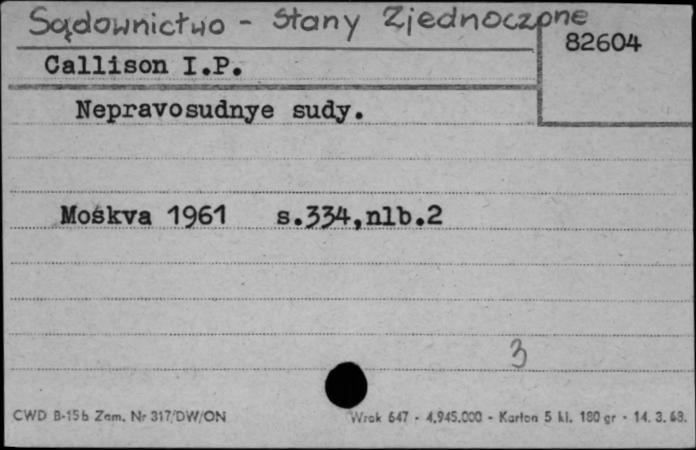 Sądownictwo - Stany Zjednoczone
82604
Callison I.P.
Nepravosudnye sudy.
Moskva 1961 s.334,nlb.2
3
CWD B-15b Zam. Nr 317/DW/ON
Wrak 647 - 4.945.000 - Karton 5 kl. 180 gr - 14. 3. 63.